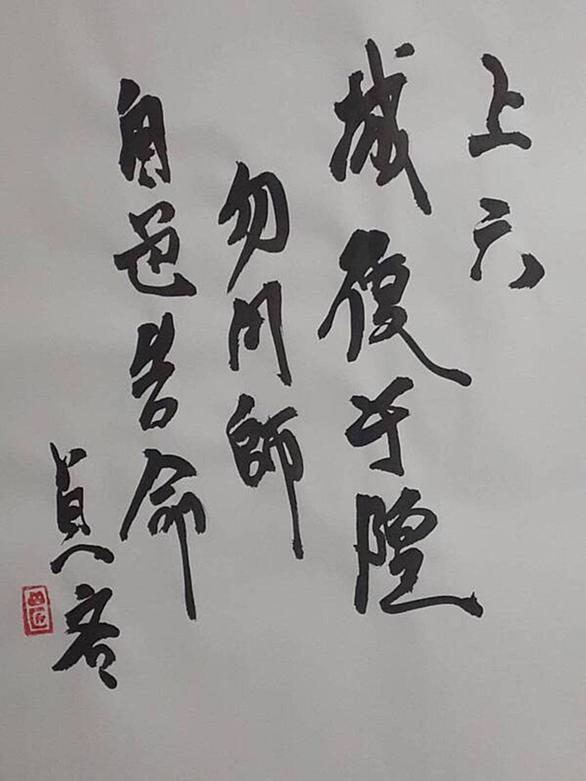 上六
城復于隍
勿用師
自邑告命
貞吝